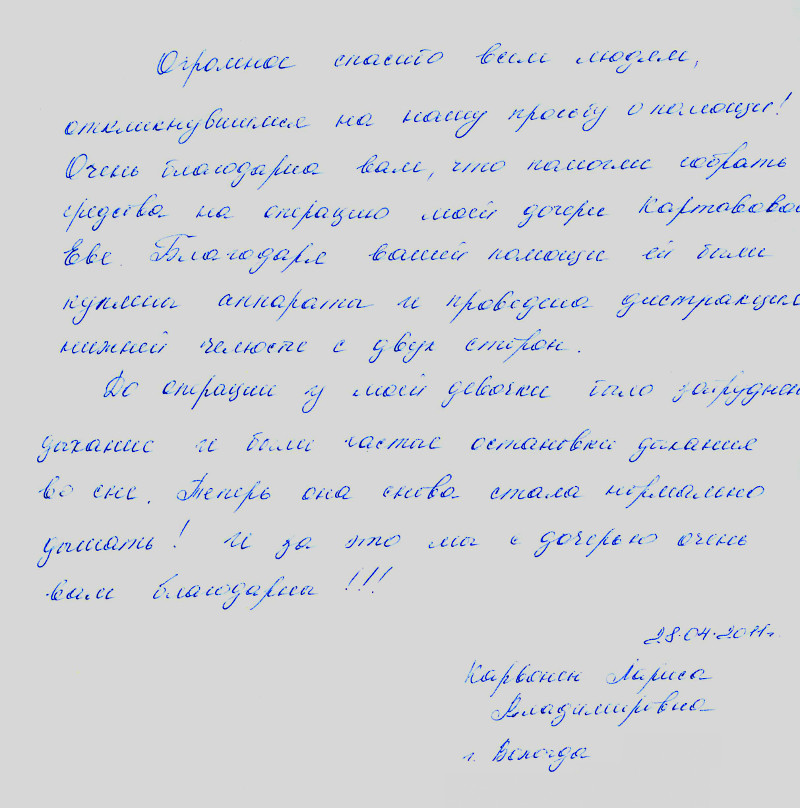 Огромное спасибо всем людям,
откликнувшимся на нашу просьбу о помощи!
Очень благодарна вам, что помогли собрать
средства на операцию моей дочери Картавовой
Еве. Благодаря вашей помощи ей были
куплены аппараты и проведена дистракция
нижней челюсти с двух сторон.
До операции у моей девочки было затруднен
дыхание и были частые остановки дыхания
во сне. Теперь она снова стала нормально
дышать! И за это мы с дочерью очень
вам благодарны!!!
28.04.2011г.
Карвонен Лариса
Владимировна
г. Вологда